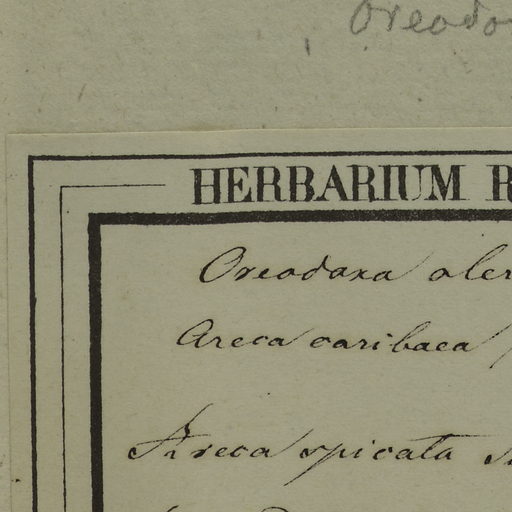 Oreodo
HERBARIUM R
Oreodoxa oler
Areca caribaea
Areca spicata